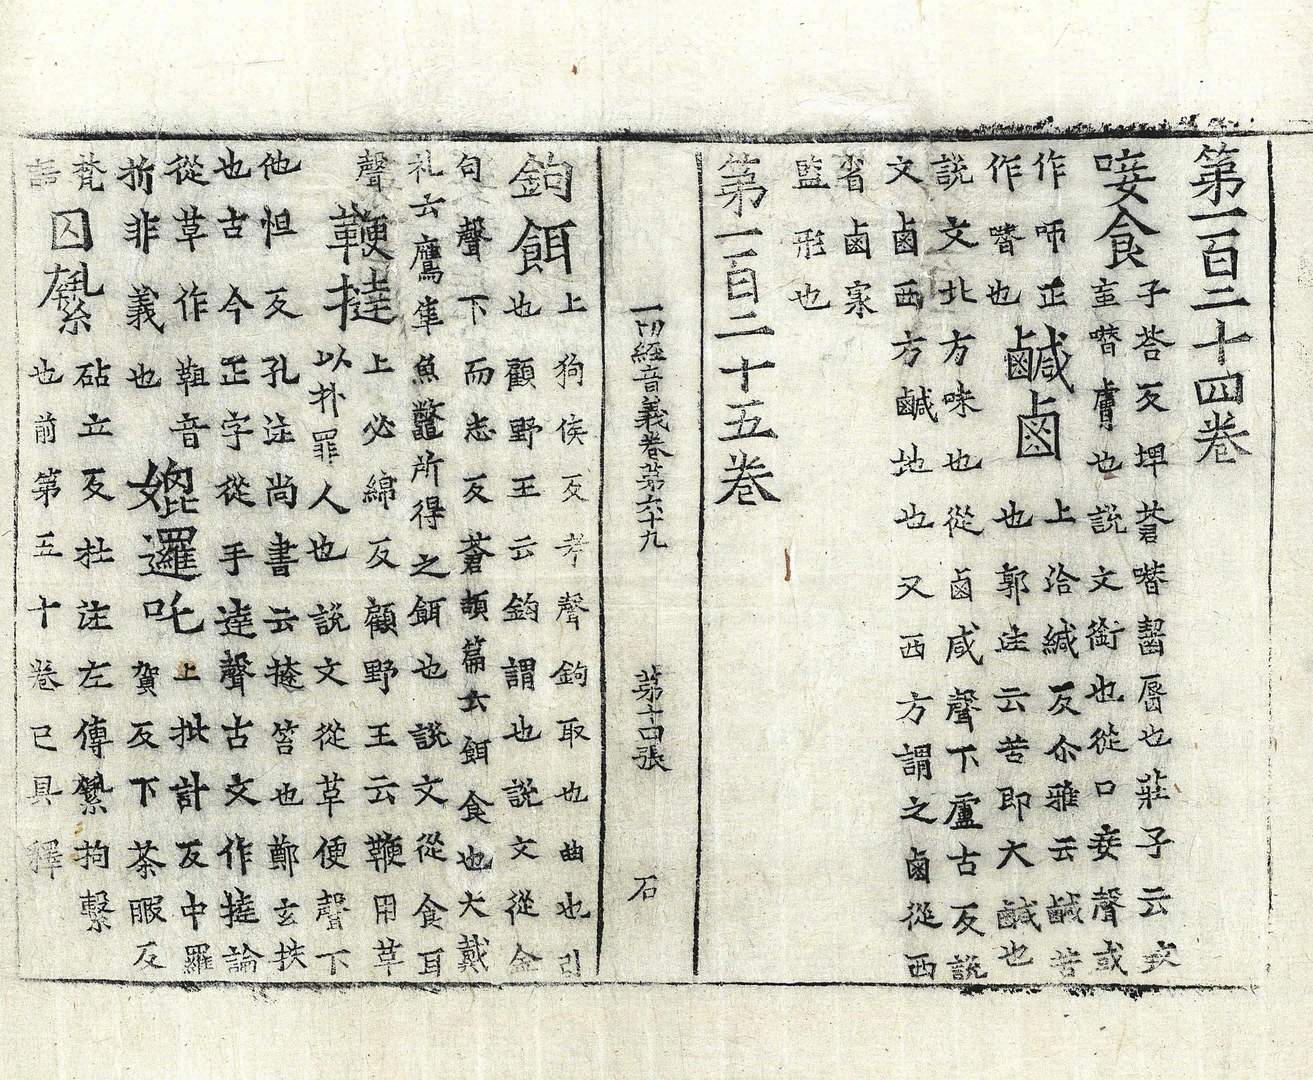 第一百二十四卷
唼食子荅反埤蒼噆齧脣也莊子云蚊
䖟噆膚也說文銜也從口妾聲或
作咂正
作噆也
鹹鹵上洽緘反尒雅云鹹苦
也郭注云苦即大鹹也
說文北方味也從鹵咸聲下盧古反說
文鹵西方鹹地也又西方謂之鹵從西
省鹵寡
監形也
第一百二十五卷
一切經音義卷第六十九　第十四張　石
鉤餌上狗侯反考聲鉤取也曲也引
也顧野王云鉤謂也說文從金
句聲下而志反蒼頡篇云餌食也大戴
礼云鷹隼魚鼈所得之餌也說文從食耳
聲
鞭撻上必綿反顧野王云鞭用革
以扑罪人也說文從革便聲下
他怛反孔注尚書云撻笞也鄭玄抶
也古今正字從手達聲古文作撻論
從草作靼音
折非義也
媲邏吒上批計反中羅
賀反下茶暇反
梵
語
囚縶砧立反杜注左傳縶拘繫
也前第五十卷已具釋